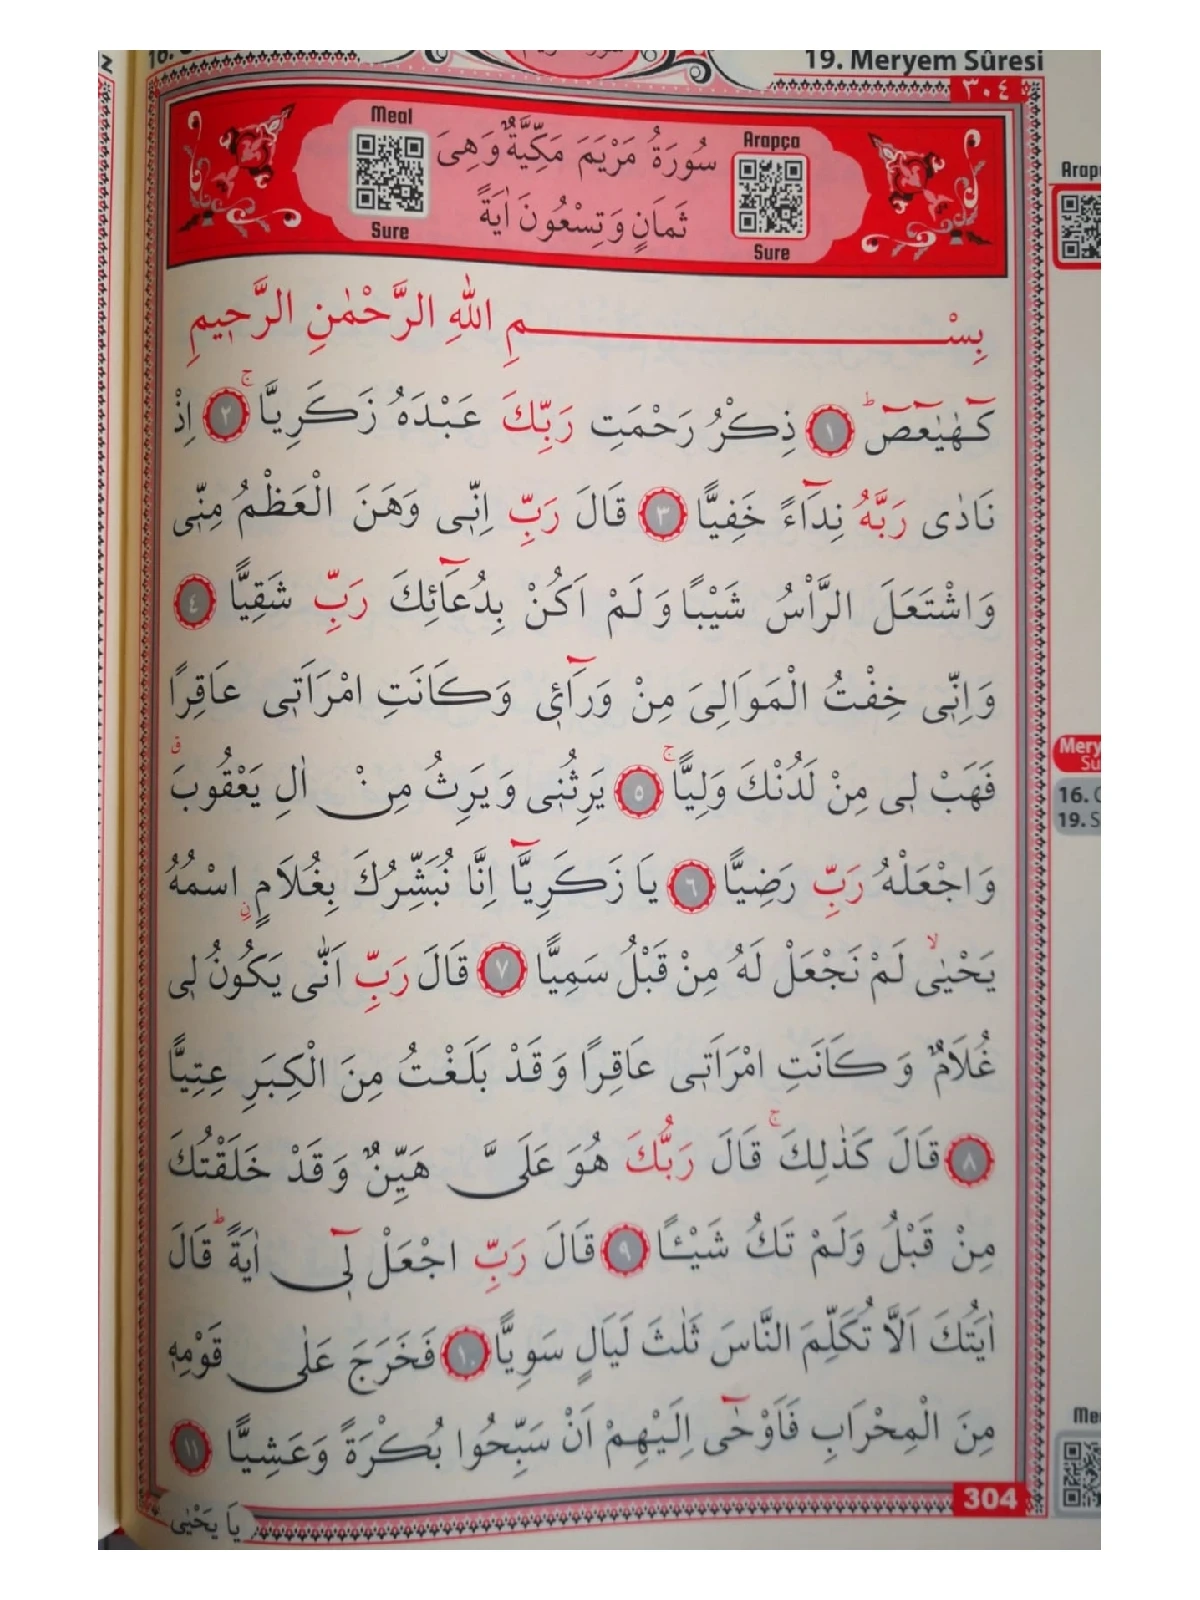 19. Meryem Sûresi
٣٠٤
Meal
Sure
Arapça
Sure
سُورَةُ مَرْيَمَ مَكِّيَّةٌ وَهِىَ
ثَمَانٍ وَتِسْعُونَ اٰيَةً
بِسْمِ اللّٰهِ الرَّحْمٰنِ الرَّح۪يمِ
كٓهٰيٰعٓصٓ ۜ ﴿١﴾ ذِكْرُ رَحْمَتِ رَبِّكَ عَبْدَهُ زَكَرِيَّا ۚ ﴿٢﴾ اِذْ
نَادٰى رَبَّهُ نِدَٓاءً خَفِيًّا ﴿٣﴾ قَالَ رَبِّ اِنّ۪ى وَهَنَ الْعَظْمُ مِنّ۪ى
وَاشْتَعَلَ الرَّاْسُ شَيْبًا وَلَمْ اَكُنْ بِدُعَٓائِكَ رَبِّ شَقِيًّا ﴿٤﴾
وَاِنّ۪ى خِفْتُ الْمَوَالِىَ مِنْ وَرَٓائ۪ى وَكَانَتِ امْرَاَت۪ى عَاقِرًا
فَهَبْ ل۪ى مِنْ لَدُنْكَ وَلِيًّا ۚ ﴿٥﴾ يَرِثُن۪ى وَيَرِثُ مِنْ اٰلِ يَعْقُوبَ ۗ
وَاجْعَلْهُ رَبِّ رَضِيًّا ﴿٦﴾ يَا زَكَرِيَّٓا اِنَّا نُبَشِّرُكَ بِغُلَامٍۨ اسْمُهُ
يَحْيٰى ۙ لَمْ نَجْعَلْ لَهُ مِنْ قَبْلُ سَمِيًّا ﴿٧﴾ قَالَ رَبِّ اَنّٰى يَكُونُ ل۪ى
غُلَامٌ وَكَانَتِ امْرَاَت۪ى عَاقِرًا وَقَدْ بَلَغْتُ مِنَ الْكِبَرِ عِتِيًّا
﴿٨﴾ قَالَ كَذٰلِكَ ۚ قَالَ رَبُّكَ هُوَ عَلَىَّ هَيِّنٌ وَقَدْ خَلَقْتُكَ
مِنْ قَبْلُ وَلَمْ تَكُ شَيْـًٔا ﴿٩﴾ قَالَ رَبِّ اجْعَلْ ل۪ٓى اٰيَةً ۜ قَالَ
اٰيَتُكَ اَلَّا تُكَلِّمَ النَّاسَ ثَلٰثَ لَيَالٍ سَوِيًّا ﴿١٠﴾ فَخَرَجَ عَلٰى قَوْمِه۪
مِنَ الْمِحْرَابِ فَاَوْحٰٓى اِلَيْهِمْ اَنْ سَبِّحُوا بُكْرَةً وَعَشِيًّا ﴿١١﴾
304
يَا يَحْيٰى
16.
19.